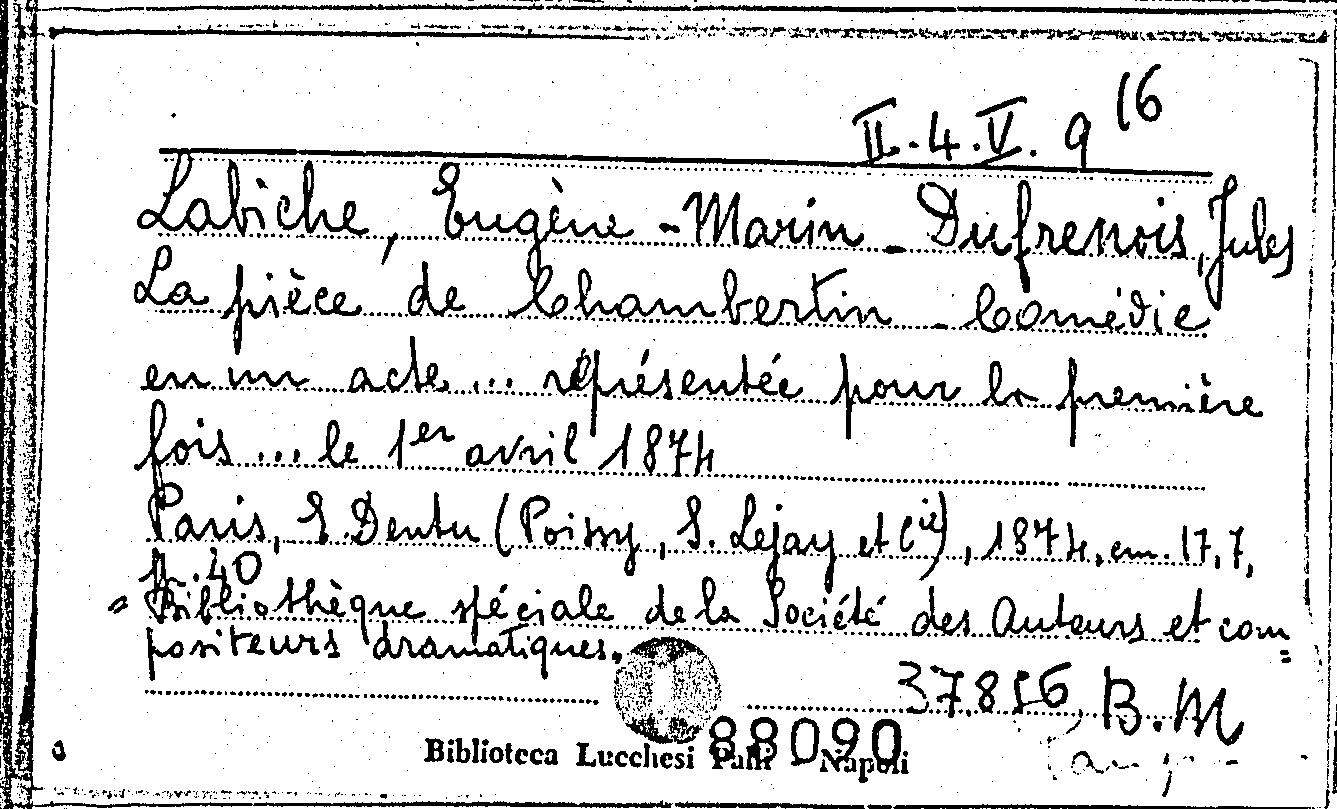 II.4.V.9 16
Labiche, Eugène-Marin - Dufrenois, Jules
La pièce de Chambertin - Comédie
en un acte ... représentée pour la première
fois ... le 1er avril 1874
Paris, E. Dentu (Poissy, S. Lejay et Cie), 1874, cm. 17,7,
p. 40
= Bibliothèque spéciale de la Société des Auteurs et com=
positeurs dramatiques.
37856 B.M
88090
Biblioteca Lucchesi Palli - Napoli